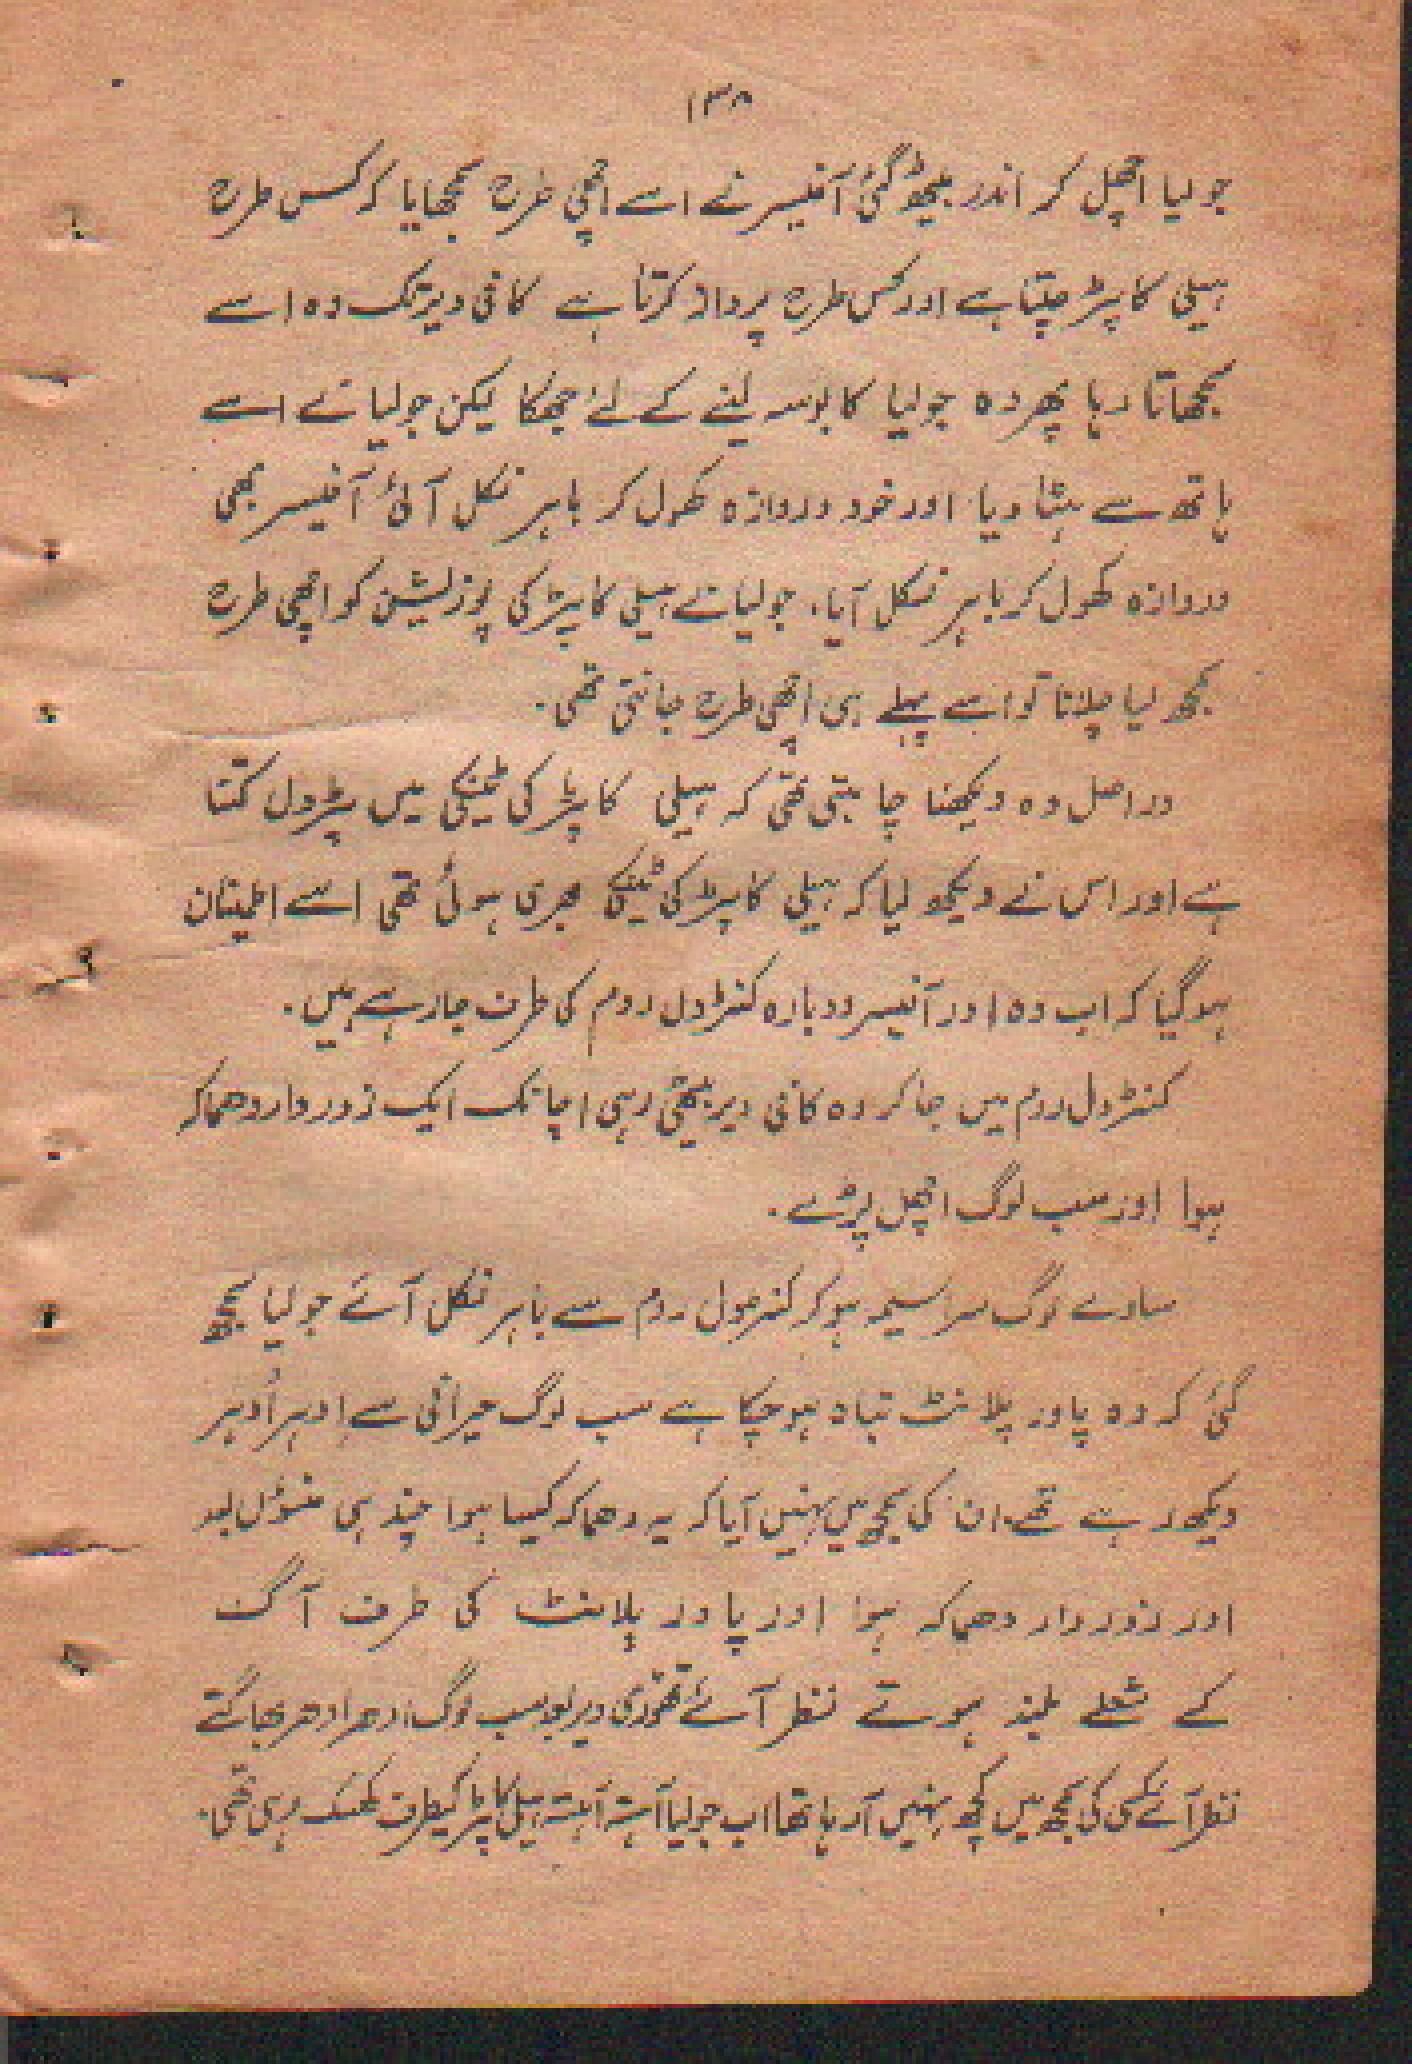 ۱۳۸
جولیا اچھل کر اندر بیٹھ گئی آفیسر نے اسے اچھی طرح سمجھایا کہ کس طرح
ہیلی کاپڑ چلتا ہے اور کس طرح پرواز کرتا ہے کافی دیر تک وہ اسے
سمجھاتا رہا پھر وہ جولیا کا بوسہ لینے کے لئے جھکا لیکن جولیا نے اسے
ہاتھ سے ہٹا دیا اور خود دروازہ کھول کر باہر نکل آئی آفیسر بھی
دروازہ کھول کر باہر نکل آیا، جولیا نے ہیلی کاپڑ کی پوزلیشن کو اچھی طرح
سمجھ لیا چلانا تو اسے پہلے ہی اچھی طرح جانتی تھی۔
دراصل وہ دیکھنا چاہتی تھی کہ ہیلی کاپڑ کی ٹینکی میں پڑول کتنا
ہے اور اس نے دیکھ لیا کہ ہیلی کاپڑ کی ٹینکی بھری ہوئی تھی اسے اطمینان
ہو گیا کہ اب وہ اور آفیسر دوبارہ کنڑول روم کی طرف جا رہے ہیں۔
کنڑول روم میں جا کر وہ کافی دیر بیٹھی رہی اچانک ایک زور دار دھماکہ
ہوا اور سب لوگ اچھل پڑے۔
سارے لوگ سراسیمہ ہو کر کنڑول روم سے باہر نکل آئے جولیا سمجھ
گئی کہ وہ پاور پلانٹ تباہ ہو چکا ہے سب لوگ حیرانی سے اِدہر اُدہر
دیکھ رہے تھے ان کی سمجھ میں نہیں آیا کہ یہ دھماکہ کیسا ہوا چند ہی منٹوں بعد
اور زور دار دھماکہ ہوا اور پاور پلانٹ کی طرف آگ
کے شعلے بلند ہوتے نظر آئے تھوڑی دیر بعد سب لوگ ادھر ادھر بھاگتے
نظر آئے کسی کی سمجھ میں کچھ نہیں آ رہا تھا اب جولیا آہستہ آہستہ ہیلی کاپڑ کیطرف کھسک رہی تھی۔